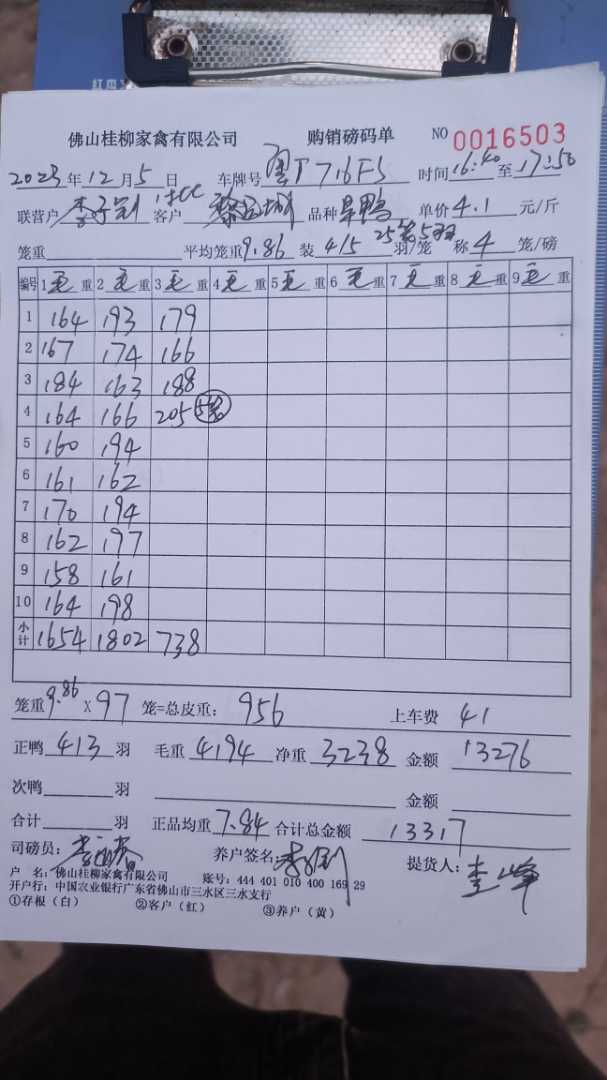 佛山桂柳家禽有限公司 购销磅码单 NO 0016503
2023年12月5日 车牌号 T716F5 时间16:40至17:50
联营户 李子钊 1批 客户 黎 城 品种 旱鸭 单价4.1元/斤
笼重 平均笼重9.86 装4/5 25笼5羽 羽/笼 称4笼/磅
编号 1毛重 2毛重 3毛重 4毛重 5毛重 6毛重 7毛重 8毛重 9毛重
1 164 193 179
2 167 174 166
3 184 163 188
4 164 166 205 5笼
5 160 194
6 161 162
7 170 194
8 162 197
9 158 161
10 164 198
小计 1654 1802 738
笼重9.86×97笼=总皮重:956 上车费 41
正鸭413羽 毛重4194 净重3238 金额13276
次鸭 羽 金额
合计 羽 正品均重7.84 合计总金额13317
司磅员: 养户签名: 提货人:李峰
户 名:佛山桂柳家禽有限公司 账号:444 401 010 400 169 29
开户行:中国农业银行广东省佛山市三水区三水支行
①存根(白) ②客户(红) ③养户(黄)